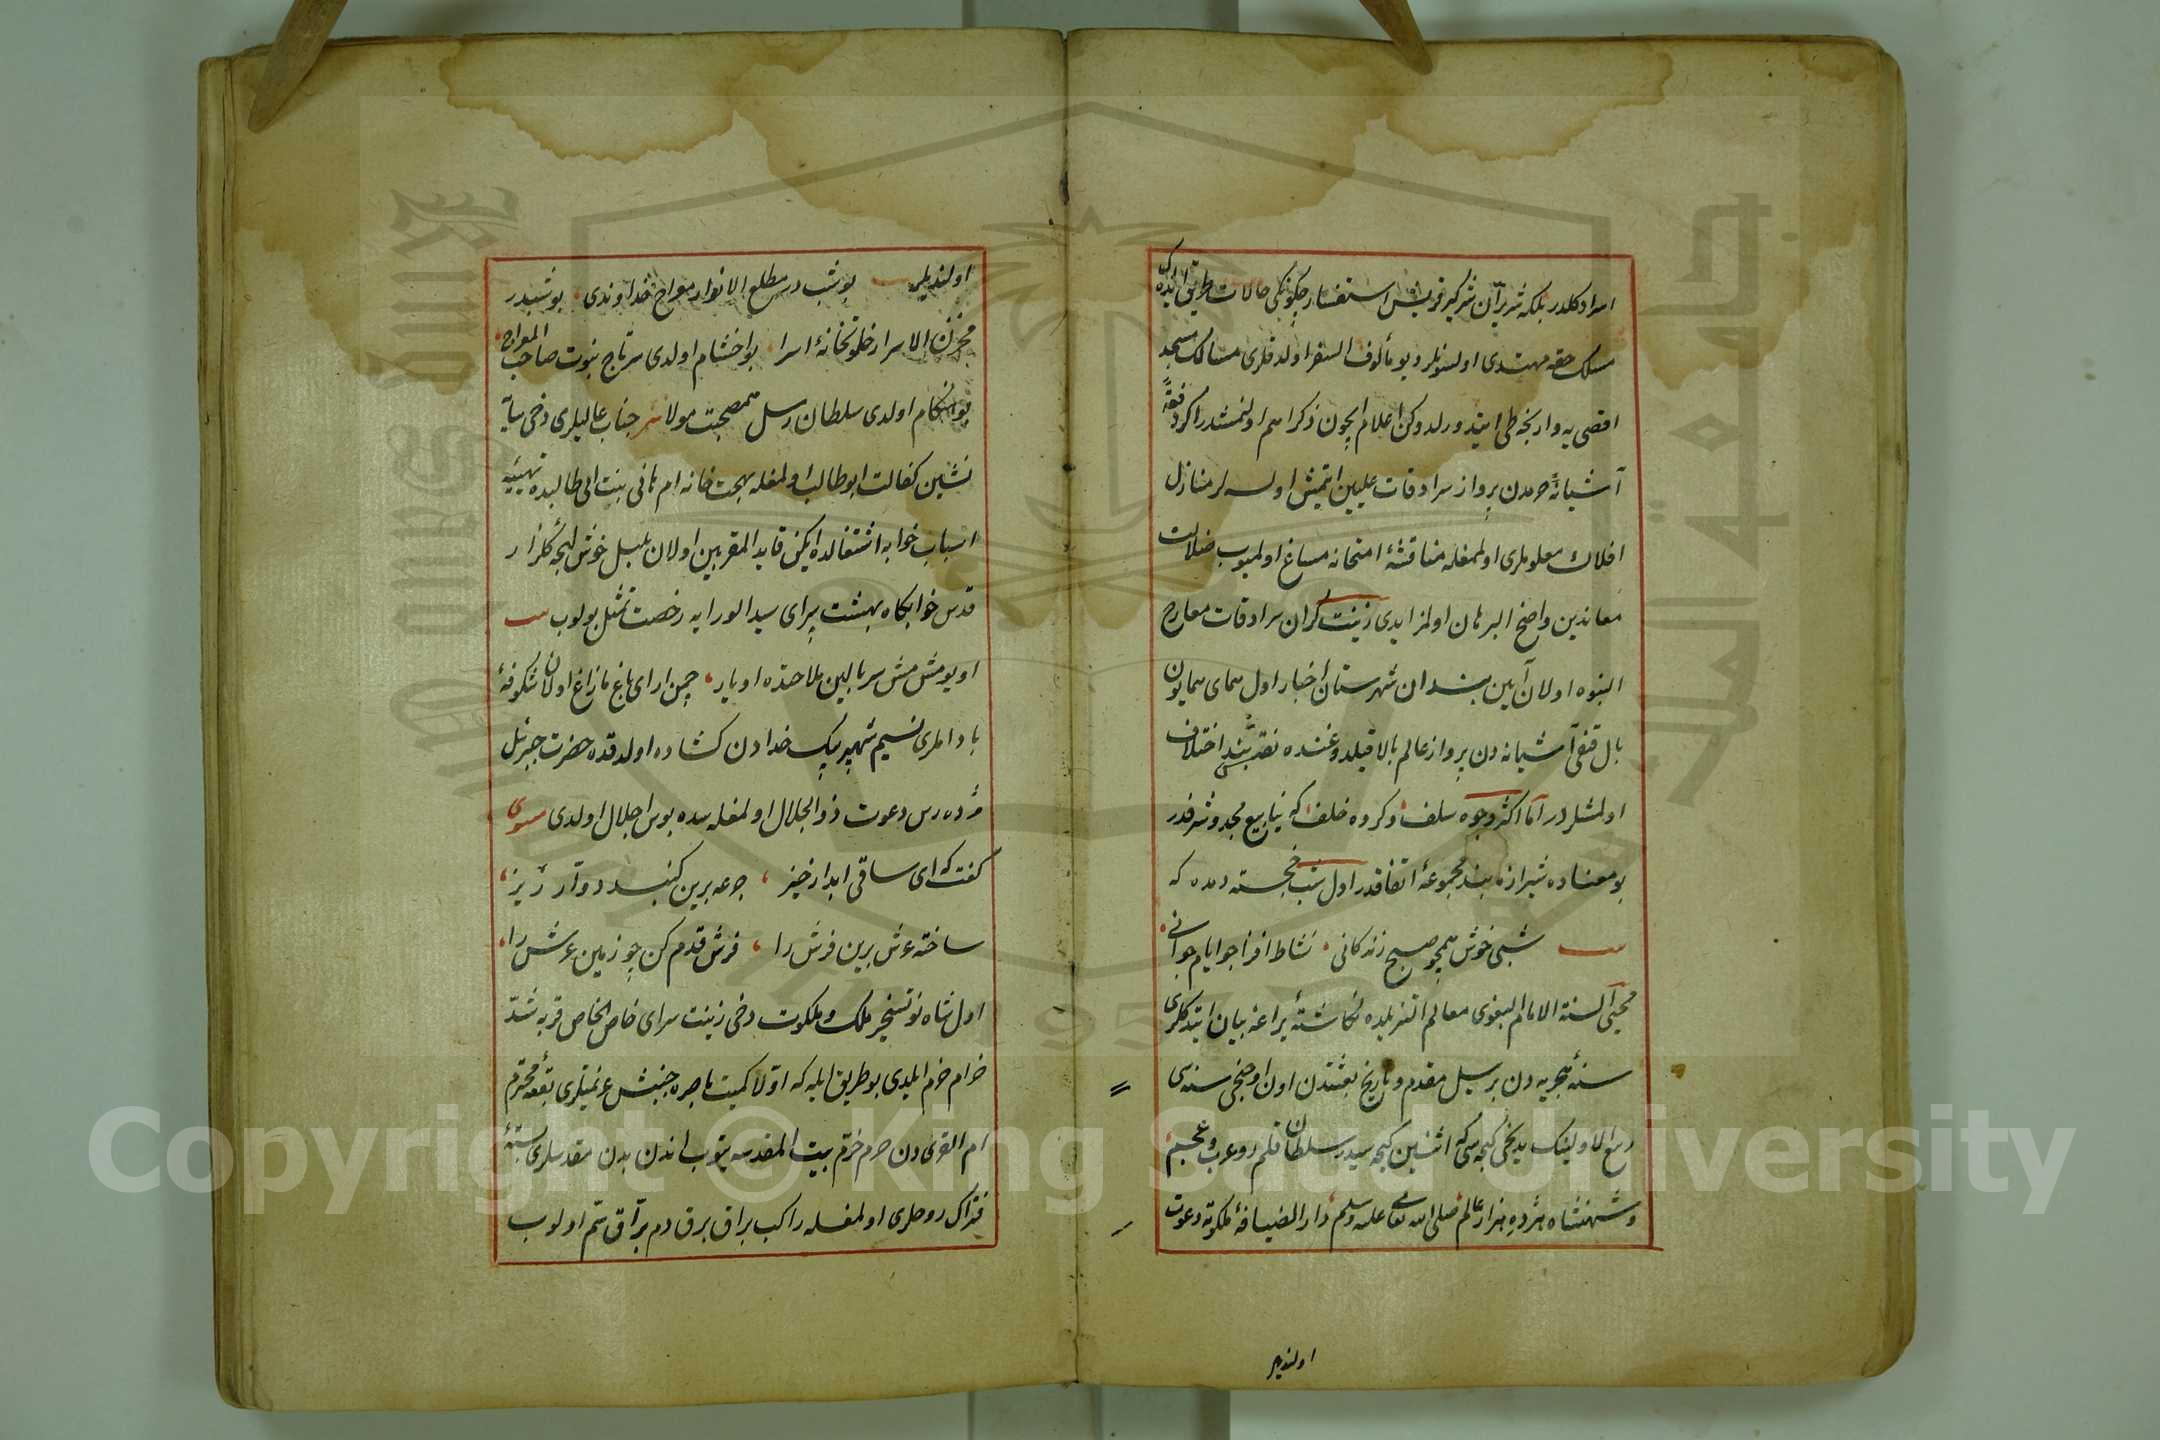 اسراد كلدر بلكه شريرآن شركير قريش استفسار چكونكى حالات طريق ايدوب
مسلك حقه مهتدى اولسونلر ديو مألوف السفر اولدقلرى مسالك مسجد
اقصى يه وارنجه طى ايتدورلدوكن اعلام ايچون ذكرا هم اولنمشدر اكر دفعةً
آشيانهٔ حرمدن پرواز سرادقات عليين ايتمش اولسه لر منازل
افلاك معلوملرى اولمغله مناقشهٔ امتحانه مساغ اولميوب ضلالت
معاندين واضح البرهان اولمز ايدى زينت كران سرادقات معارج
النبوه اولان آيين بندان شهرستان اخبار اول هماى همايون
بال قنغى آشيانه دن پرواز عالم بالا قيلدوغنده نقشبند اختلاف
اولمشلردر اما اكثر وجوه سلف وكروه خلف كه ينابيع مجد وشرفدر
بو معناده شيرازه بند مجموعهٔ اتفاقدر اول شب خجسته دمده كه
شبى خوش همچو صبح زندكانى نشاط افزا چو ايام جوانى
محيى السنة الامام البغوى معالم التنزيلده نكاشتهٔ يراعهٔ بيان ايتدكلرى
سنهٔ هجريه دن بر ييل مقدم وتاريخ بعثتدن اون اوچنجى سنه سى
ربيع الاولينك يديجى كيجه سى كه اثنين كيجه سيدر سلطان قلمرو عرب وعجم
وشهنشاه هژده هزار عالم صلى الله تعالى عليه وسلم دار الضيافهٔ ملكوته دعوت
اولنديلر
اولنديلر بو شب در مطلع الانوار معراج خداوندى بو شبدر
مخزن الاسرار خلوتخانهٔ اسرا بو اخشام اولدى سرتاج نبوت صاحب المعراج
بو هنكام اولدى سلطان رسل همصحبت مولا جناب عاليلرى دخى سايه
نشين كفالت ابو طالب اولمغله بهجت خانه ام هانى بنت ابى طالبده تهيئهٔ
اسباب خوابه اشتغالده ايكن قايد المقربين اولان بلبل خوش لهجهٔ كلزار
قدس خوابكاه بهشت سراى سيد الورايه رخصت تمثل بولوب
اويومش مش سر بالين بلا حذه اويار چمن اراى باغ مازاغ اولان شكوفهٔ
باداملرى نسيم شهپر پيك خدادن كشاده اولدقده حضرت جبرئيل
مژده رس دعوت ذو الجلال اولمغله سده بوس اجلال اولدى
كفت كه اى ساقى ابدار خيز جرعه برين كنبد دوار ريز
ساخته عرش برين فرش را فرش قدم كن چو زمين عرش را
اول شاه نو تسخير ملك وملكوت دخى زينت سراى خاص الخاص قربه شد
خرام خرم ايلدى بو طريق ايله كه اولا كميت باصره جنبش عزيمتلرى بقعه محترم
ام القرى دن حرم محترم بيت المقدسه يتوب اندن بدن مقدسلرى بستهٔ
فتراك روحلرى اولمغله راكب براق برق دم براق سم اولوب